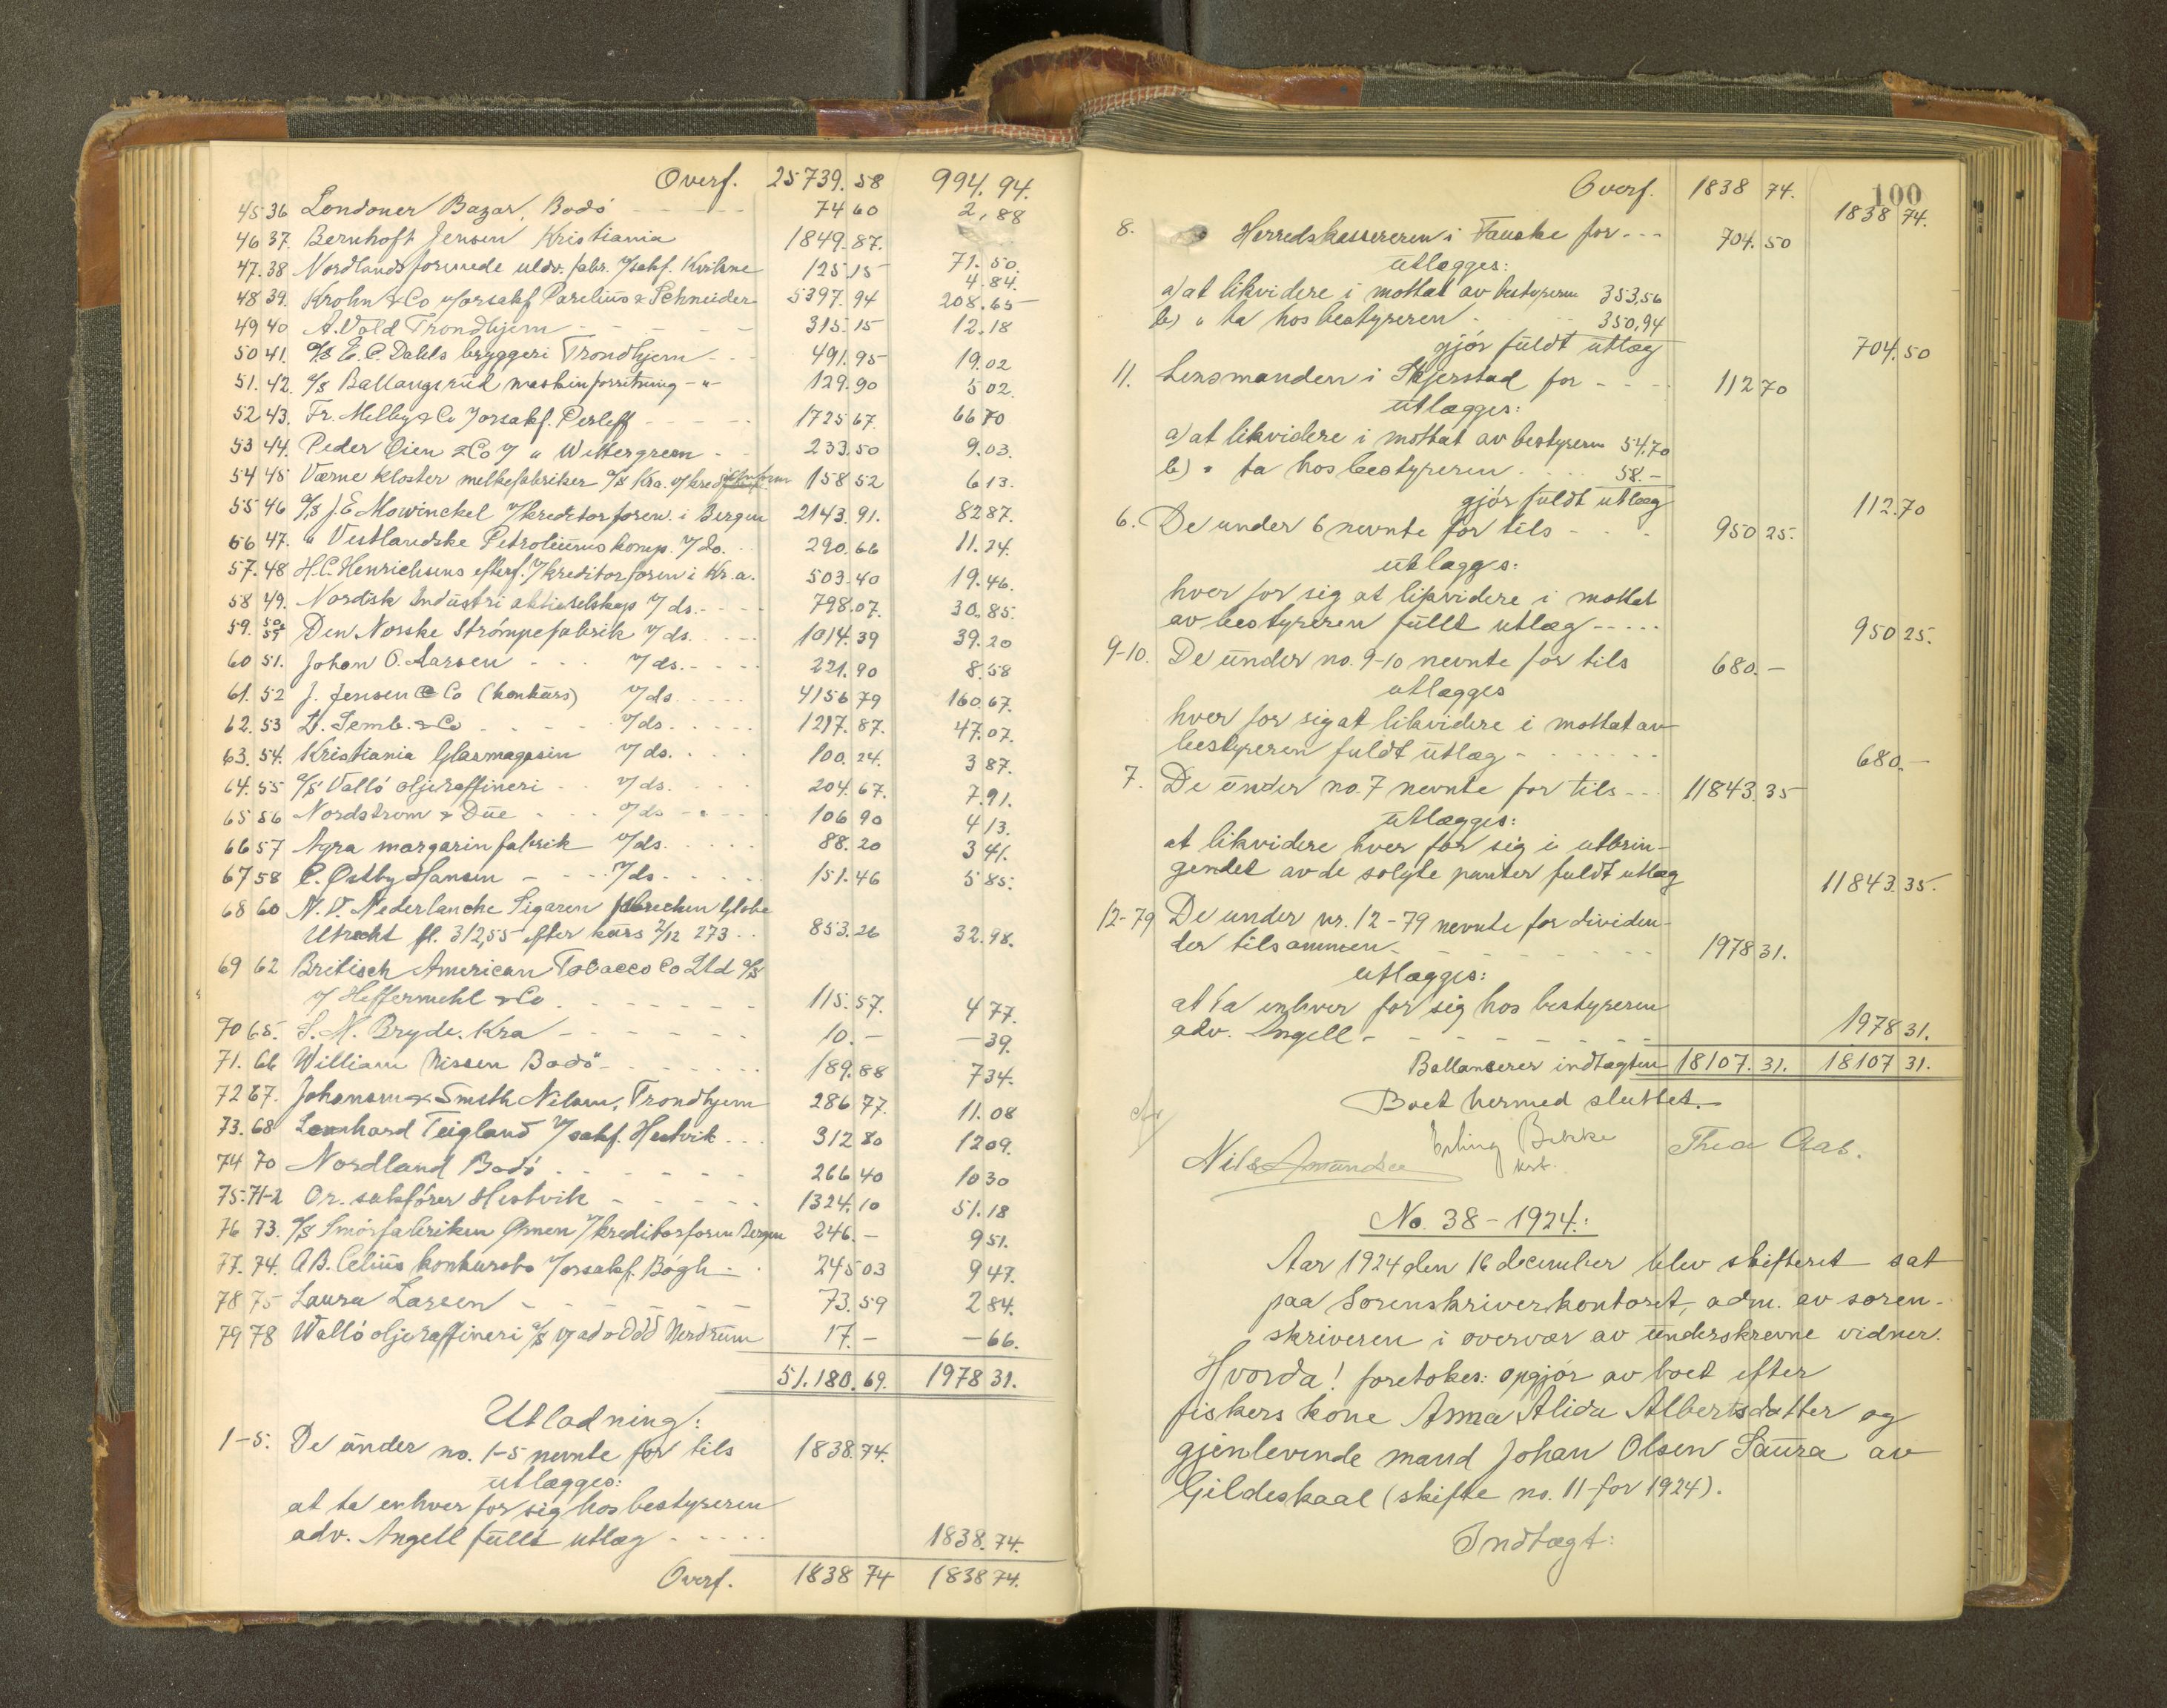 Overf. 25739.58 994.94.
45 36 Londoner Bazar, Bodö 74 60 2,88
46 37. Bernhoft Jensen Kristiania 1849.87. 71.50.
47.38 Nordlands forenede uldv. fabr. v/sakf. Kvibsne 125.15 4.84.
48 39. Krohn & Co v/orsakf Parelius & Schneider 5397.94 208.65
49 40 A. Vold Trondhjem 315.15 12.18
50 41. a/s E. C. Dahls bryggeri Trondhjem 491.95 19.02
51. 42. a/s Ballangrud maskinforretning -"- 129.90 5 02.
52 43. Fr. Melby & Co v/orsakf. Perleff 1725 67. 66 70
53 44. Peder Öien & Co v/ " Wettergreen 233.50 9.03.
54 45 Værne kloster melkefabriker a/s Kra. v/ 158 52 6 13.
55 46 a/s J. E Mowinckel v/kreditorforen. i Bergen 2143.91. 82 87.
56 47. " Vestlandske Petroleumskomp. v/do. 290.66 11.24.
57.48 H. C. Henrichsens efterf. v/kreditorforen i Kr.a. 503.40 19.46.
58 49. Nordisk Industri aktieselskap v/ds. 798.07. 30.85.
59. 50 Den Norske Strömpefabrik v/ds. 1014.39 39.20
60 51. Johan O. Aarsen v/ds. 221.90 8.58
61. 52 J. Jensen & Co (konkurs) v/ds 4156 79 160.67.
62. 53 D. Semb. & Co v/ds. 1217.87. 47.07.
63. 54. Kristiania Glasmagasin v/ds. 100.24. 3 87.
64. 55 a/s Vallö oljeraffineri v/ds. 204.67. 7.91.
65 56 Nordstrom & Due v/ds 106 90 4 13.
66 57 Agra margarinfabrik v/ds. 88.20 3 41.
67 58 C. Østby Hansen v/ds. 151.46 5 85.
68 60 N. V. Nederlanche Sigaren fabrieken Globe
Utrecht fl. 312,55 efter kurs 2/12 273 853.26 32.98.
69 62 Britisch American Tobacco Co Ltd a/s
v/ Heffermehl & Co 115.57. 4 77.
70 65. S. M. Bryde. Kra 10.- -39.
71. 66 William Nissen Bodö 189.88 7 34.
72 67. Johansen & Smith Nilsen, Trondhjem 286 77. 11.08
73. 68 Leonhard Teigland v/sakf. Hestvik 312 80 12 09.
74 70 Nordland Bodö 266 40 10 30
75.71-2 Or. sakförer Hestvik 1324.10 51.18
76 73. a/s Smörfabriken Ornen v/kreditorforen Bergen 246.- 9 51.
77. 74. A. B. Celius konkursbo v/orsakf. Bögh 245 03 9 47.
78 75 Laura Larsen 73.59 2 84.
79 78 Wallö oljeraffineri a/s v/adv Odd Nerdrum 17.- -66.
51.180.69. 1978 31.
Utlodning:
1-5. De under no. 1-5 nevnte for tils 1838.74.
utlægges:
at ta enhver for sig hos bestyreren
adv. Angell fullt utlæg 1838.74.
Overf. 1838 74 1838 74.
100
Overf. 1838 74. 1838 74.
8. Herredskassereren i Fauske for 704.50
utlægges:
a) at likvidere i mottat av bestyreren 353,56
b) " ta hos bestyreren 350,94
gjör fuldt utlæg 704.50
11. Lensmanden i Skjerstad for 112 70
utlægges:
a) at likvidere i mottat av bestyreren 54.70
b) " ta hos bestyreren 58.-
gjör fuldt utlæg 112.70
6. De under 6 nevnte for tils 950 25.
utlægges:
hver for sig at likvidere i mottat
av bestyreren fullt utlæg 950 25.
9-10. De under no. 9-10 nevnte for tils 680.-
utlægges
hver for sig at likvidere i mottat av
bestyreren fuldt utlæg 680.-
7. De under no. 7 nevnte for tils 11843.35
utlægges:
at likvidere hver for sig i utbrin-
gendet av de solgte panter fuldt utlæg 11843.35.
12-79 De under nr. 12-79 nevnte for dividen-
der tilsammen 1978 31.
utlægges:
at ta enhver for sig hos bestyreren
adv. Angell 1978 31.
Ballanserer indtægten 18107.31. 18107 31.
Boet hermed sluttet.
Nils Amundsen Erling Bekke Thea Aas.
No. 38-1924.:
Aar 1924 den 16 december blev skifteret sat
paa Sorenskriverkontoret, adm. av soren-
skriveren i overvær av underskrevne vidner.
Hvorda! foretokes: opgjör av boet efter
fiskers kone Anna Alida Albertsdatter og
gjenlevende mand Johan Olsen Saura av
Gildeskaal (skifte no. 11 for 1924).
Indtægt: